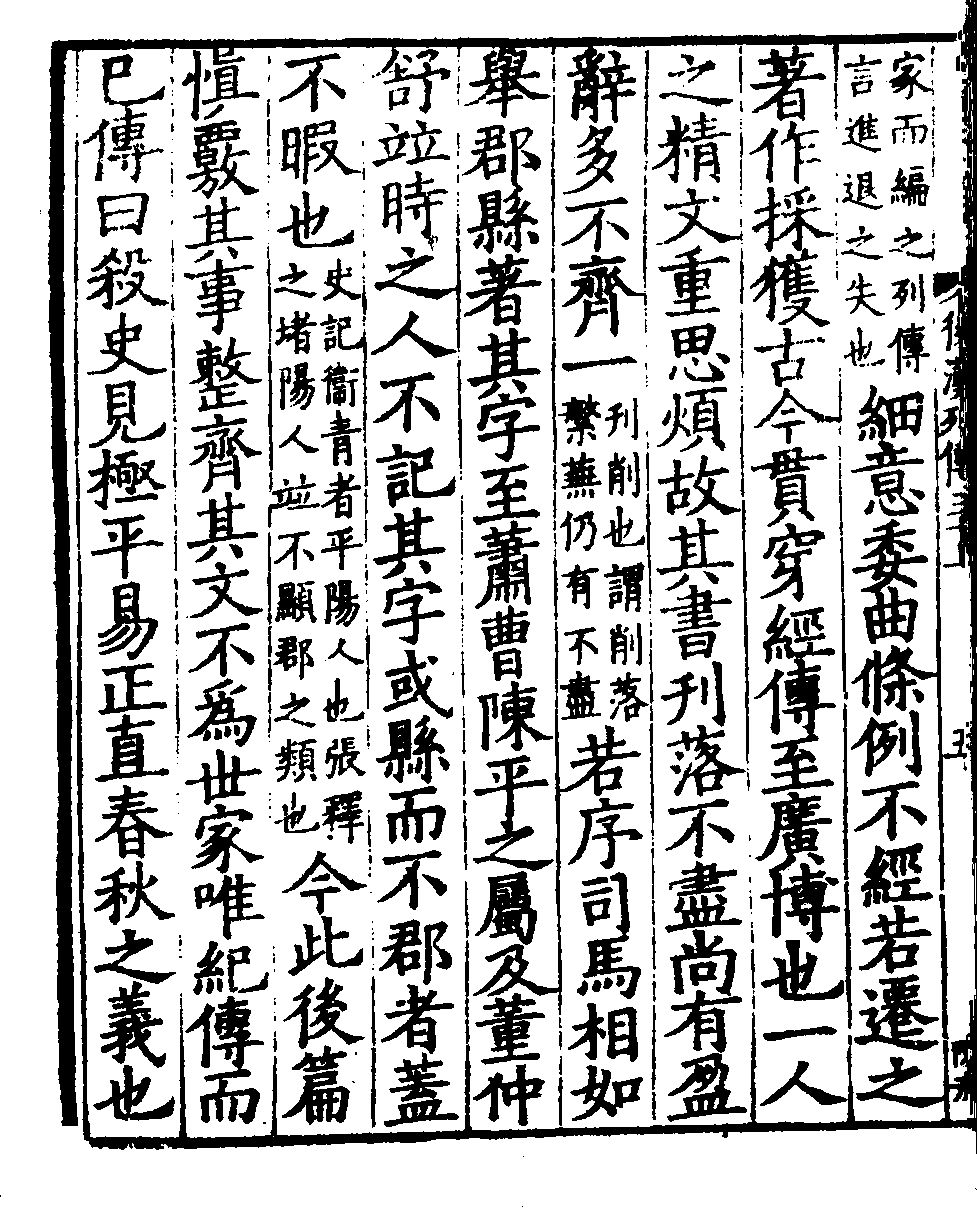 家而編之列傳言進退之失也細意委曲條例不經若遷之
著作採獲古今貫穿經傳至廣博也一人
之精文重思煩故其書刋落不盡尚有盈
辭多不齊一刋削也謂削落繁蕪仍有不盡若序司馬相如
舉郡縣著其字至蕭曹陳平之屬及董仲
舒竝時之人不記其字或縣而不郡者蓋
不暇也史記衞青者平陽人也張釋之堵陽人竝不顯郡之類也今此後篇
慎覈其事整齊其文不為世家唯紀傳而
已傳曰殺史見極平易正直春秋之義也